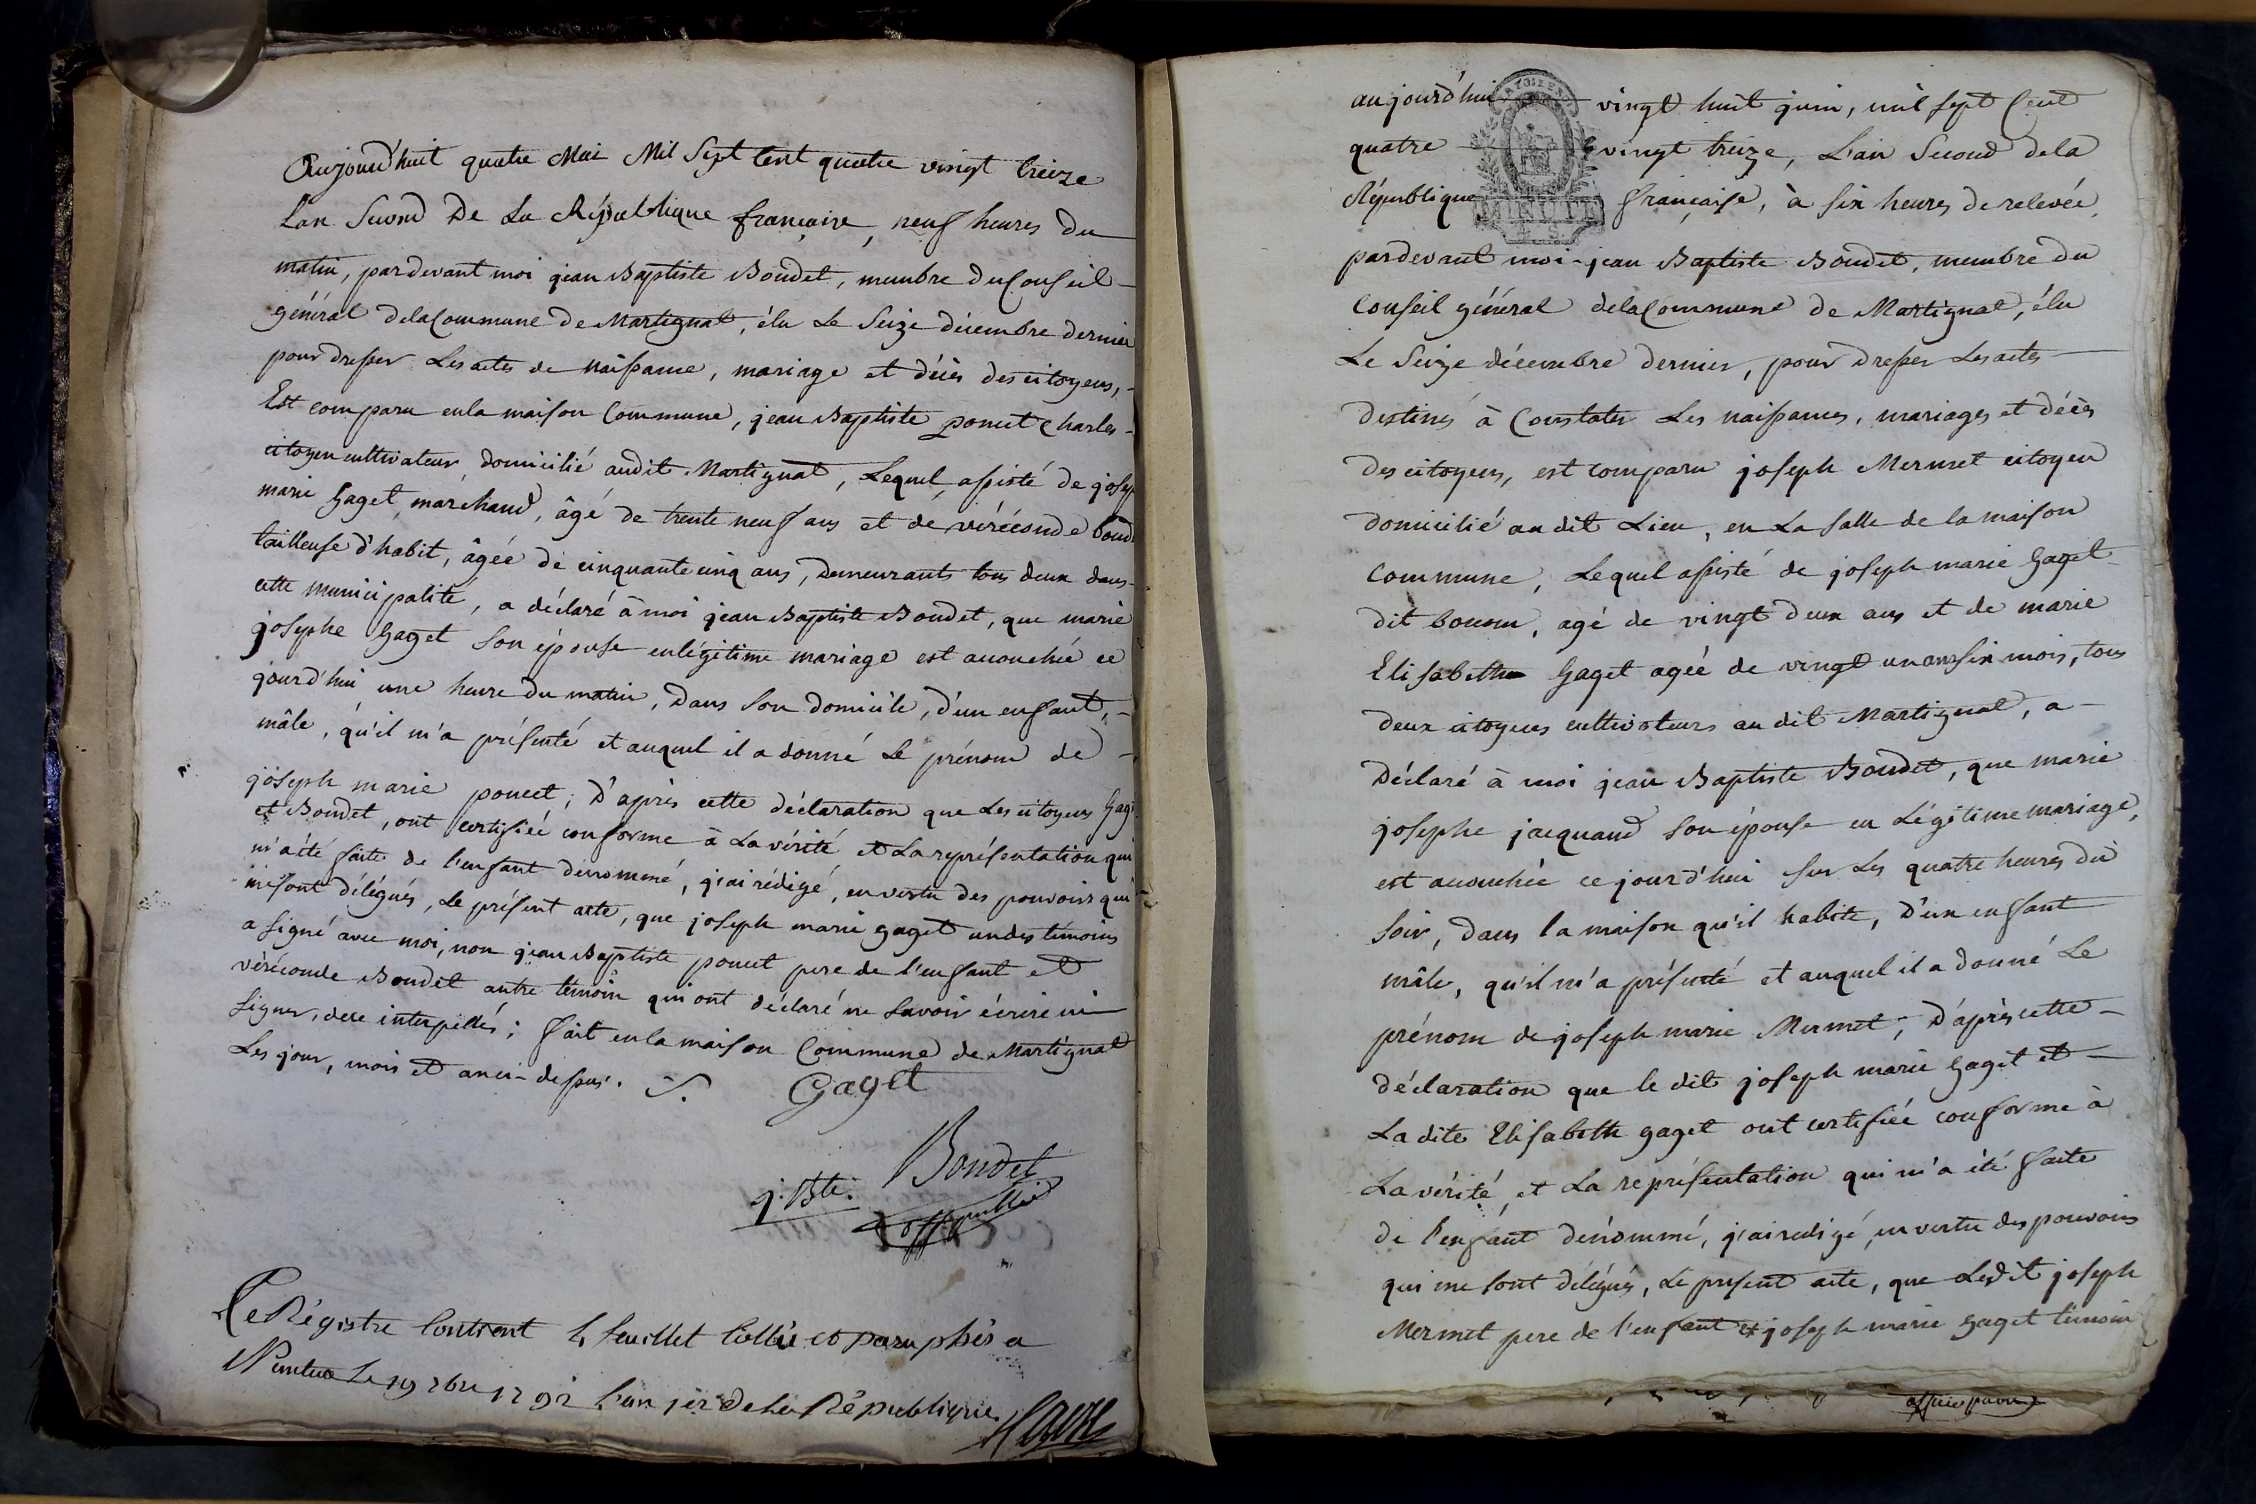 Aujourd'huit quatre Mai Mil Sept Cent quatre vingt treize
L'an Second De La République françaire, neuf heures du
matin, pardevant moi jean Baptiste Boudet, membre du Conseil
général dela Commune de Martignat, élu Le Seize décembre dernier
pour dresser Les actes de naissance, mariage et décès des citoyens,
Est comparu en la maison Commune, jean Baptiste poncet Charles
citoyen cultivateur domicilié audit Martignat, Lequel assisté de josep
marie Gaget, maréchand, âgé de trente neuf ans et de véréconde boud
tailleuse d'habit, âgée de cinquante cinq ans, Demeurants tous deux dans
cette municipalité, a déclaré à moi jean Baptiste Boudet, que marie
josephe Gaget son épouse en légitime mariage est accouchée ce
jourd'hui une heure du matin, Dans son domicile, d'un enfant,
mâle, qu'il m'a présenté et auquel il a donné Le prénom de
joseph marie poncet; D'après cette déclaration que Les citoyens Gag
et Boudet, ont certifiée conforme à La vérité et La représentation qui
m'a été faite de l'enfant dénommé, j'ai rédigé, en vertu des pouvoirs qui
me sont délégués, Le présent acte, que joseph marie gaget un des témoins
a signé avec moi, non jean Baptiste poncet pere de l'enfant et
véréconde Boudet autre témoin qui ont déclaré ne Savoir écrire ni
Signer, de ce interpellés; fait en la maison Commune de Martignat
Les jour, mois et an ci-dessus.
Gaget
j. Bte. Boudet
off. public
Ce Régistre Contient 4 feuillet Cottés et paraphés a
Nantua Le 19 xbre 1792 l'an 1er De La République
aujourd'hui vingt huit juin, mil sept Cent
quatre vingt treize, L'an Second de la
République française, à six heures de relevée,
pardevant moi jean Baptiste Boudet, membre du
Conseil général dela Commune de Martignat, élu
Le Seize décembre dernier, pour dresser Les actes
destinés à Constater Les naissances, mariages et décès
des citoyens, est comparu joseph Mermet citoyen
domicilié au dit Lieu, en La salle de la maison
Commune, Lequel assisté de joseph marie Gaget
dit bonom, agé de vingt deux ans et de marie
Elisabeth Gaget agée de vingt un ans six mois, tous
deux citoyens cultivateurs au dit Martignat, a
Déclaré à moi jean Baptiste Boudet, que marie
josephe jacquand son épouse en Légitime mariage,
est accouchée ce jourd'hui sur Les quatre heures du
soir, dans la maison qu'il habite, d'un enfant
mâle, qu'il m'a présenté et auquel il a donné Le
prénom de joseph marie Mermet; D'après cette
déclaration que le dit joseph marie Gaget et
La dite Elisabeth gaget ont certifiée conforme à
La vérité et La représentation qui m'a été faite
de l'enfant dénommé, j'ai redigé, en vertu des pouvoirs
qui me sont délégués, Le présent acte, que Ledit joseph
Mermet pere de l'enfant et joseph marie Gaget témoin